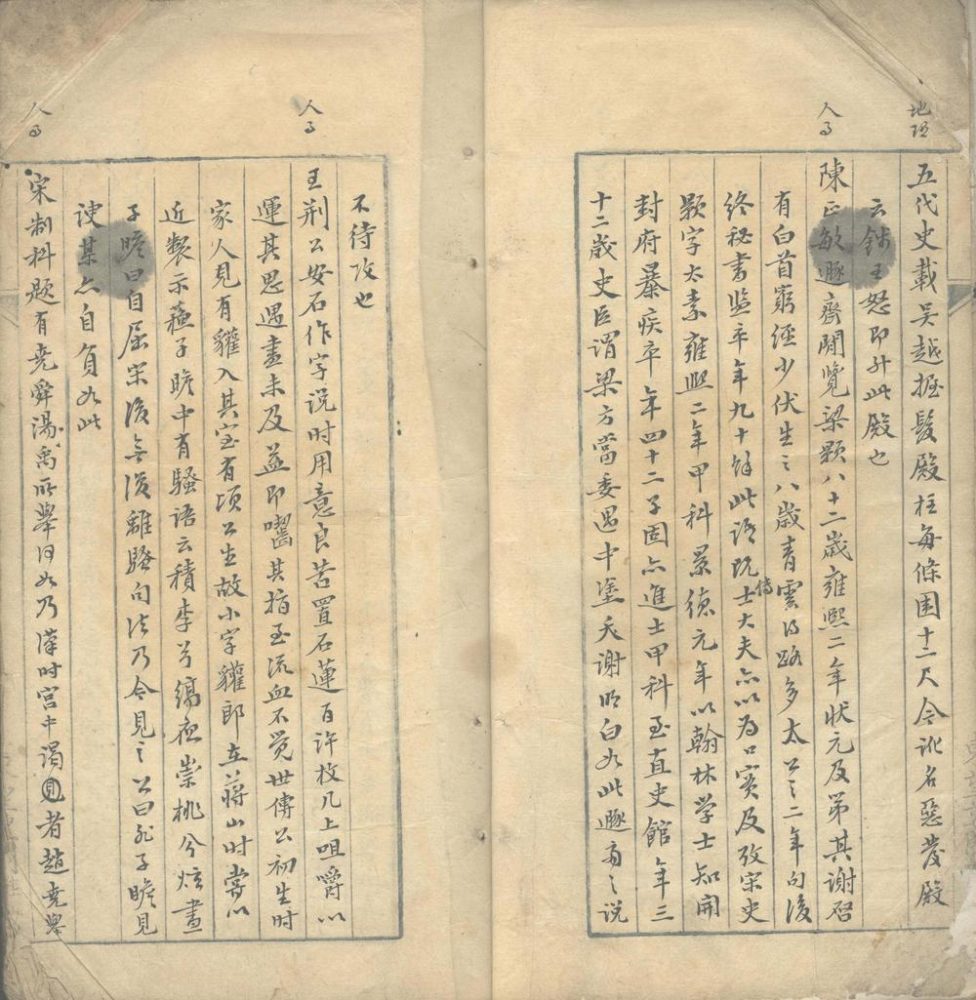 地理
五代史載吴越握髮殿柱每條圍十二尺今訛名惡發殿
云錢王怒即升此殿也
人事
陳正敏遯齋閒覽梁顥八十二歲雍熙二年狀元及第其謝啓
有白首窮經少伏生之八歲青雲得路多太公之二年句後
終秘書監卒年九十餘此語既傳士大夫亦以為口實及攷宋史
顥字太素雍熙二年甲科景德元年以翰林学士知開
封府暴疾卒年四十二子固亦進士甲科至直史館年三
十二歲史臣謂梁方當委遇中塗夭謝明白如此遯齋之説
不待攻也
人事
王荆公安石作字説时用意良苦置石蓮百許枚几上咀嚼以
運其思遇盡未及益即囓其指至流血不觉世傳公初生时
家人見有貛入其室有頃公生故小字貛郎在蔣山时嘗以
近製示蘓子瞻中有騷語云積李兮縞夜崇桃兮炫晝
子瞻曰自屈宋後無復離騷句法乃今見之公曰非子瞻見
諛某亦自負如此
人事
宋制科題有堯舜湯禹所舉何如乃漢时宫中謁見者趙堯舉